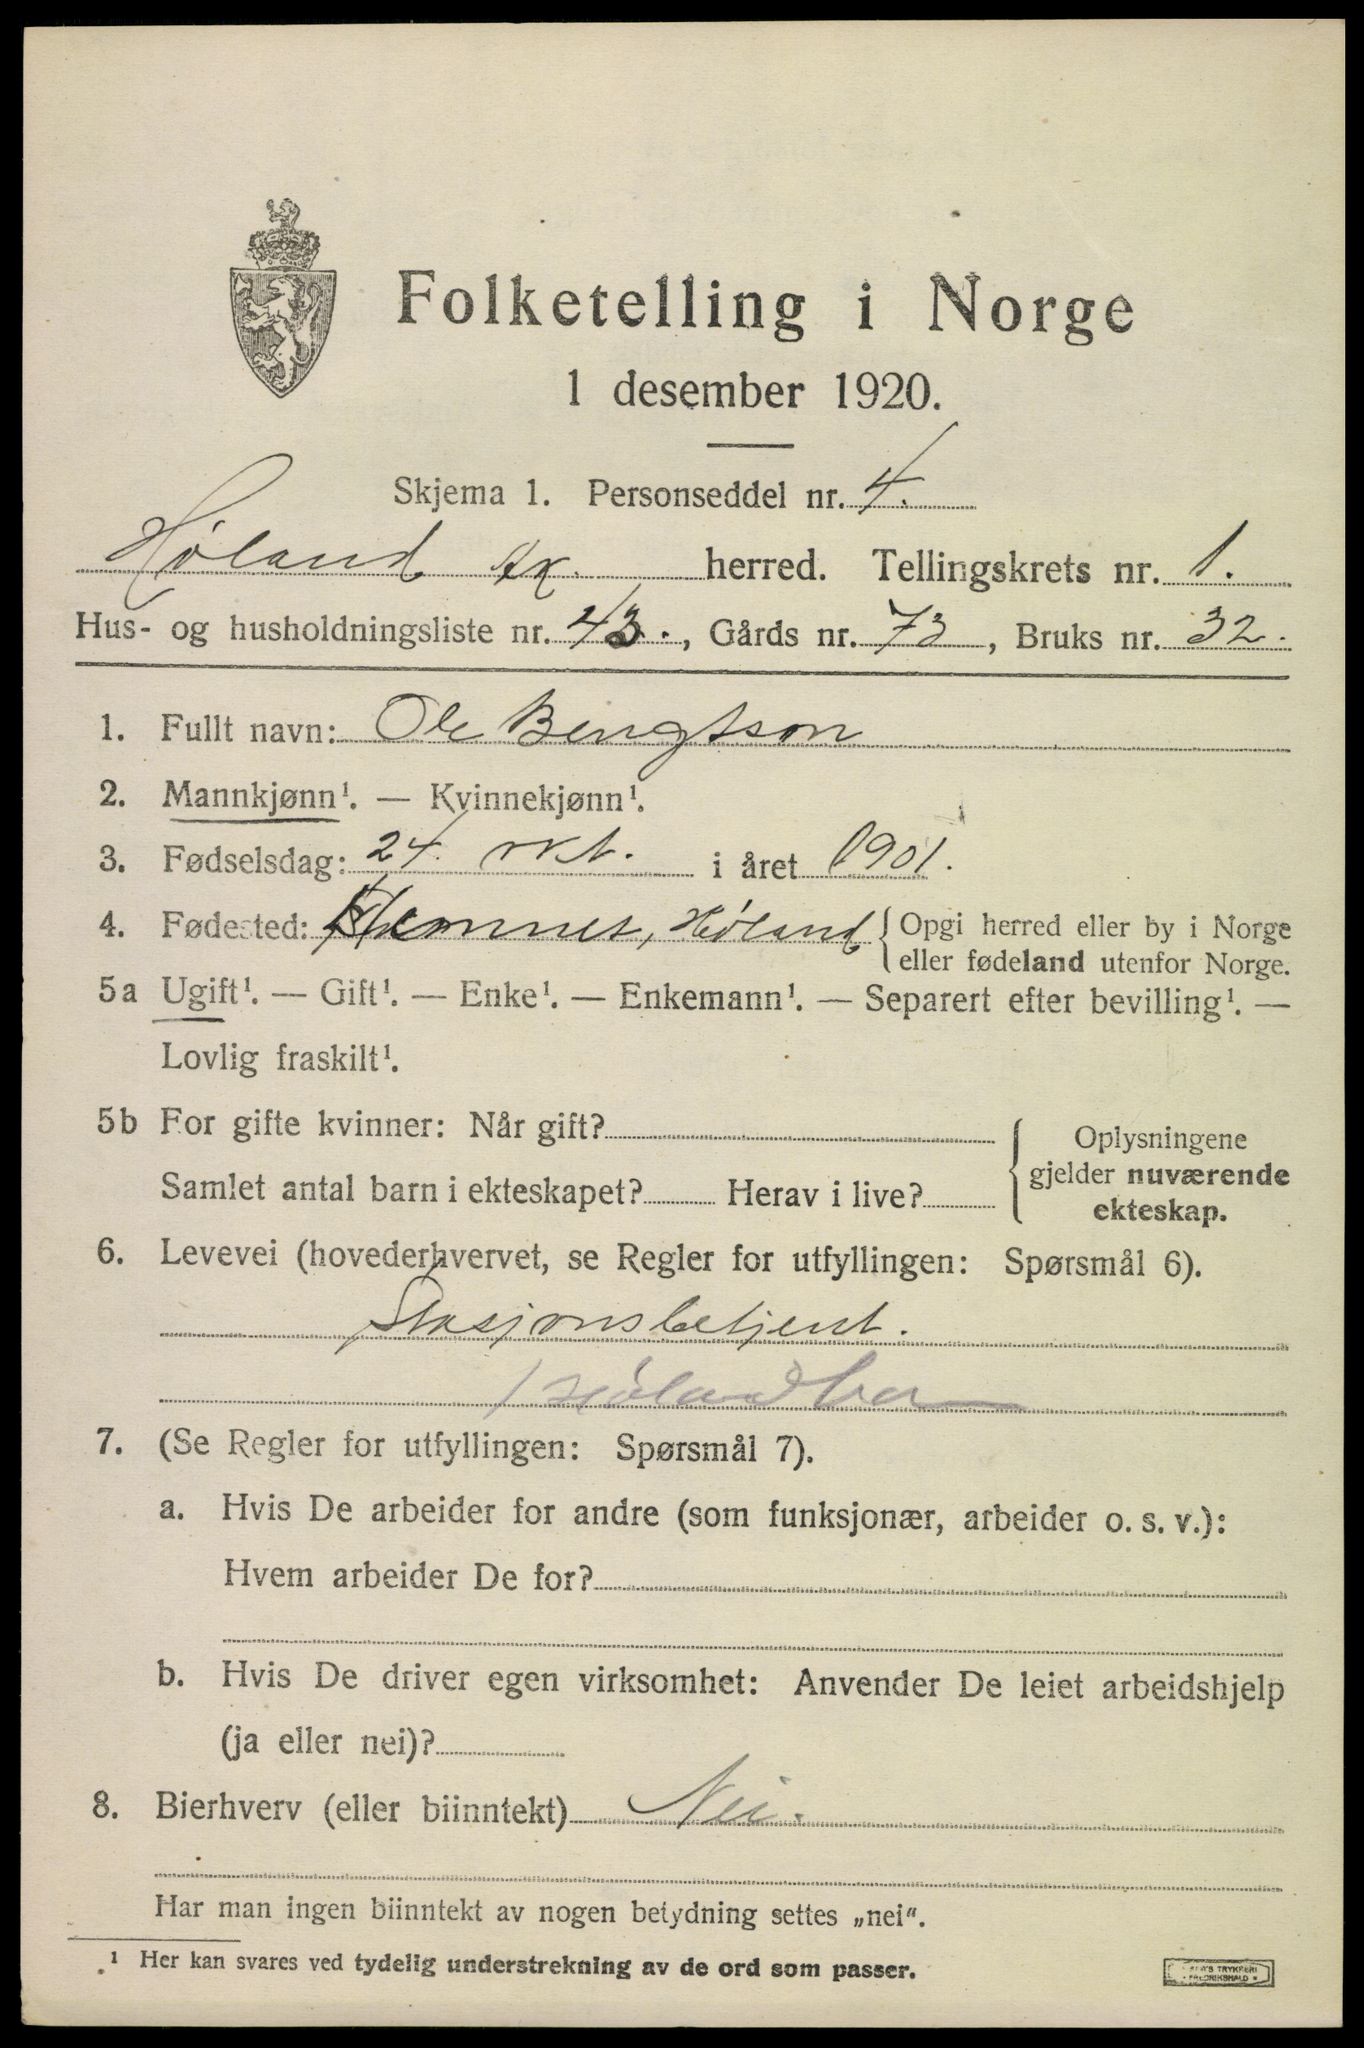 Folketelling i Norge
1 desember 1920.
Skjema 1. Personseddel nr. 4.
Høland Ak. herred. Tellingskrets nr. 1.
Hus- og husholdningsliste nr. 43., Gårds nr. 73, Bruks nr. 32.
1. Fullt navn: Ole Bengtson
2. Mannkjønn¹. — Kvinnekjønn¹.
3. Fødselsdag: 24. okt. i året 1901.
4. Fødested: Hemnes, Høland { Opgi herred eller by i Norge
eller fødeland utenfor Norge.
5a Ugift¹. — Gift¹. — Enke¹. — Enkemann¹. — Separert efter bevilling¹. —
Lovlig fraskilt¹.
5b For gifte kvinner: Når gift?
Samlet antal barn i ekteskapet? Herav i live?
{ Oplysningene
gjelder nuværende
ekteskap.
6. Levevei (hovederhvervet, se Regler for utfyllingen: Spørsmål 6).
Stasjonsbetjent.
Høland
7. (Se Regler for utfyllingen: Spørsmål 7).
a. Hvis De arbeider for andre (som funksjonær, arbeider o. s. v.):
Hvem arbeider De for?
b. Hvis De driver egen virksomhet: Anvender De leiet arbeidshjelp
(ja eller nei)?
8. Bierhverv (eller biinntekt) Nei.
Har man ingen biinntekt av nogen betydning settes „nei".
¹ Her kan svares ved tydelig understrekning av de ord som passer.
TRYKKERI
FREDRIKSHALD